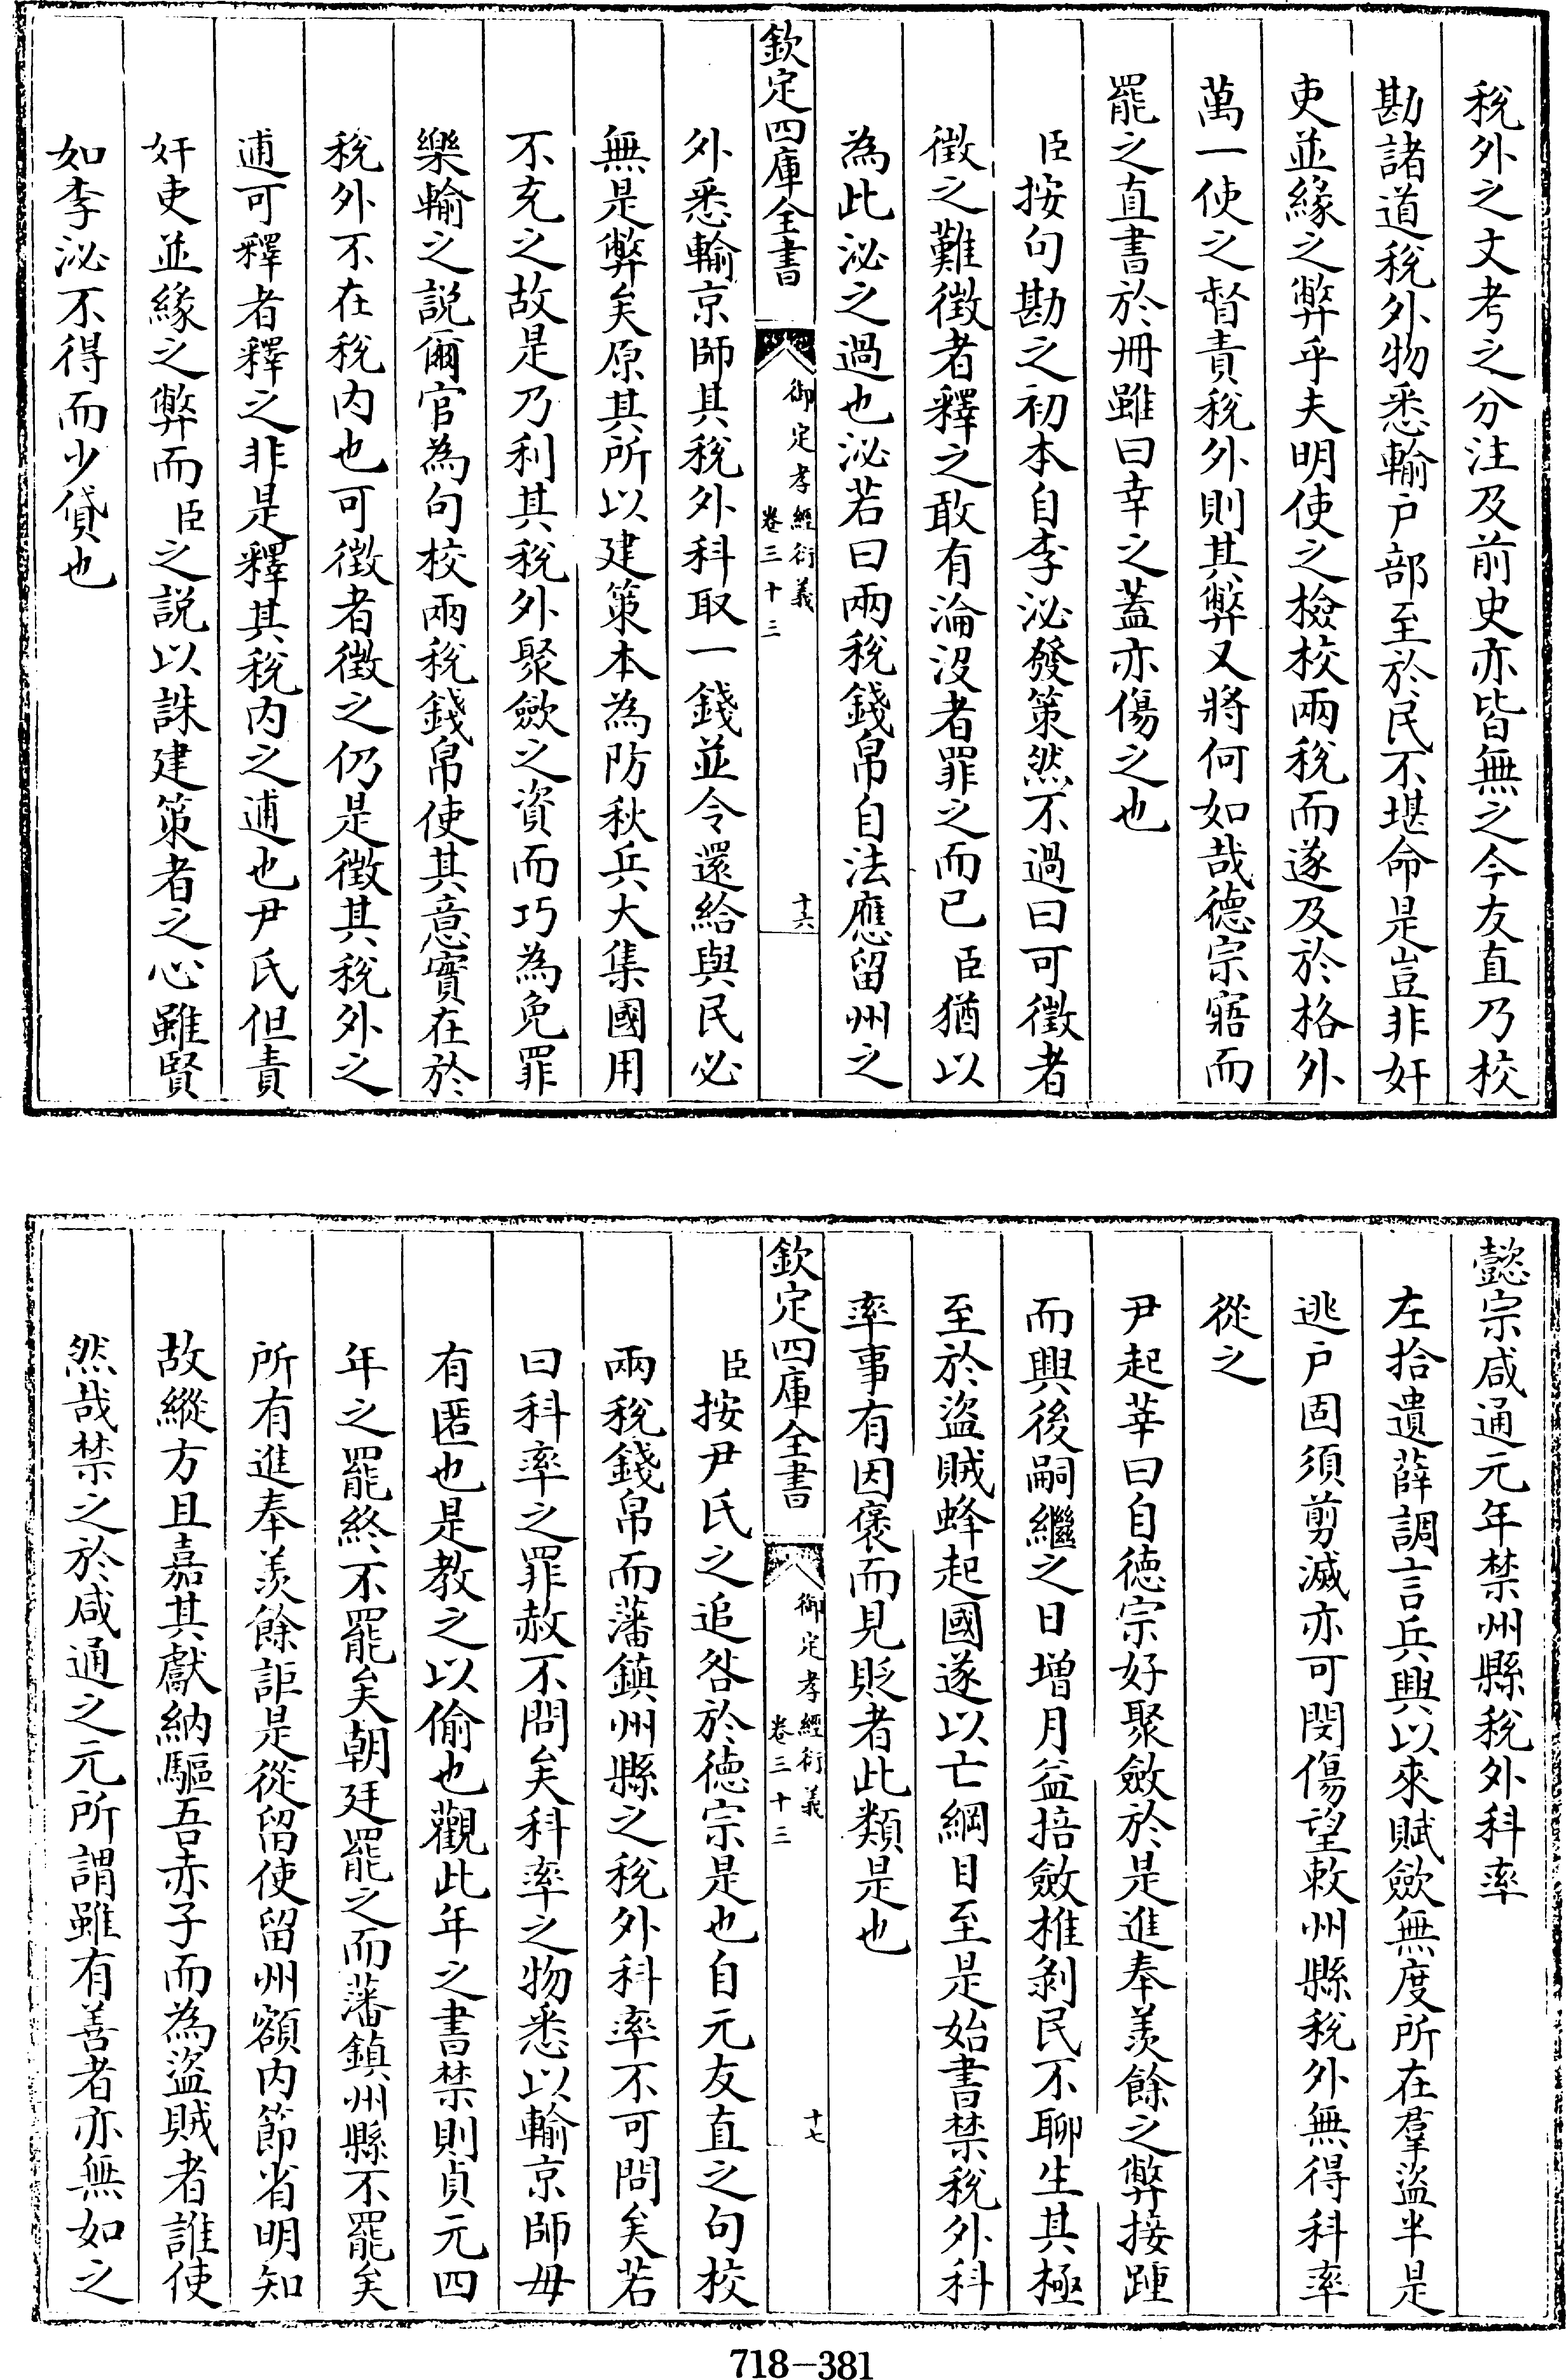 稅外之文考之分注及前史亦皆無之今友直乃校
勘諸道稅外物悉輸户部至於民不堪命是豈非奸
吏並緣之弊乎夫明使之檢校兩稅而遂及於格外
萬一使之督責稅外則其弊又將何如哉德宗寤而
罷之直書於冊雖曰幸之蓋亦傷之也
臣按句勘之初本自李泌發策然不過曰可徵者
徵之難徵者釋之敢有淪沒者罪之而已臣猶以
為此泌之過也泌若曰兩稅錢帛自法應留州之
欽定四庫全書
御定孝經衍義
卷三十三
十六
外悉輸京師其稅外科取一錢並令還給與民必
無是弊矣原其所以建策本為防秋兵大集國用
不充之故是乃利其稅外聚斂之資而巧為免罪
樂輸之說爾官為句校兩稅錢帛使其意實在於
稅外不在稅内也可徵者徵之仍是徵其稅外之
逋可釋者釋之非是釋其稅内之逋也尹氏但責
奸吏並緣之弊而臣之說以誅建策者之心雖賢
如李泌不得而少貸也
懿宗咸通元年禁州縣稅外科率
左拾遺薛調言兵興以來賦斂無度所在羣盜半是
逃户固須剪滅亦可閔傷望敕州縣稅外無得科率
從之
尹起莘曰自德宗好聚斂於是進奉羡餘之弊接踵
而興後嗣繼之日增月益掊斂椎剝民不聊生其極
至於盜賊蜂起國遂以亡綱目至是始書禁稅外科
率事有因褒而見貶者此類是也
欽定四庫全書
御定孝經衍義
卷三十三
十七
臣按尹氏之追咎於德宗是也自元友直之句校
兩稅錢帛而藩鎮州縣之稅外科率不可問矣若
曰科率之罪赦不問矣科率之物悉以輸京師毋
有匿也是教之以偷也觀此年之書禁則貞元四
年之罷終不罷矣朝廷罷之而藩鎮州縣不罷矣
所有進奉羡餘詎是從留使留州額内節省明知
故縱方且嘉其獻納驅吾赤子而為盜賊者誰使
然哉禁之於咸通之元所謂雖有善者亦無如之
718-381